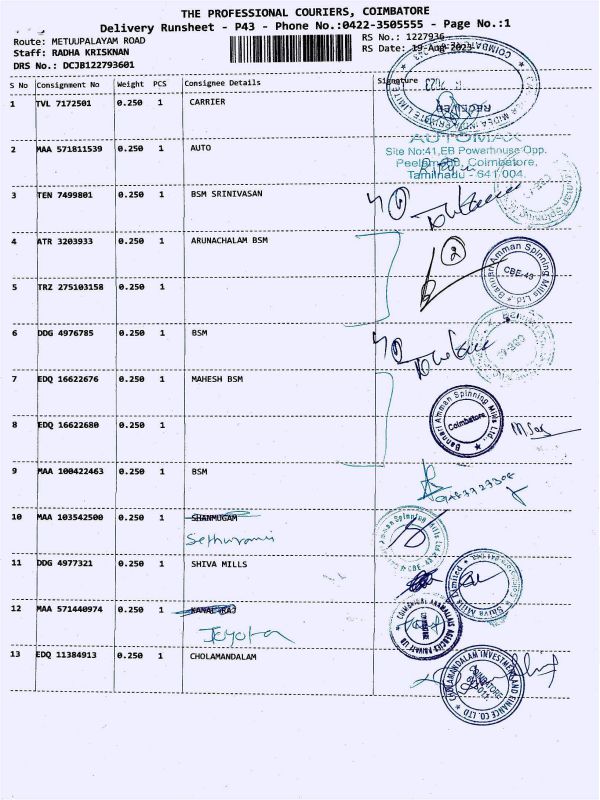 THE PROFESSIONAL COURIERS, COIMBATORE
Delivery Runsheet - P43 - Phone No.:0422-3505555 - Page No.:1
Route: METUUPALAYAM ROAD
RS No.: 1227936
Staff: RADHA KRISKNAN
RS Date: 19-Aug-2023
DRS No.: DCJB122793601
S No Consignment No Weight PCS Consignee Details Signature
1 TVL 7172501 0.250 1 CARRIER
RECEIVED
AUTOMAX
2 MAA 571811539 0.250 1 AUTO
Site No:41,EB Powerhouse Opp.
Peelamedu, Coimbatore,
Tamilnadu - 641 004.
3 TEN 7499801 0.250 1 BSM SRINIVASAN
4 ATR 3203933 0.250 1 ARUNACHALAM BSM
2
Bannari Amman Spinning Mills Ltd
CBE-43
5 TRZ 275103158 0.250 1
6 DDG 4976785 0.250 1 BSM
7 EDQ 16622676 0.250 1 MAHESH BSM
Bannari Amman Spinning Mills Ltd.,
Coimbatore
8 EDQ 16622680 0.250 1
9 MAA 100422463 0.250 1 BSM
10 MAA 103542500 0.250 1 SHANMUGAM
Sethurami
Amman Spinning Mills Ltd
CBE-43
11 DDG 4977321 0.250 1 SHIVA MILLS
Shiva Mills Limited
12 MAA 571440974 0.250 1 KANAGARAJ
Toyota
COIMBATORE ANAMALLAIS AGENCIES PRIVATE LTD
13 EDQ 11384913 0.250 1 CHOLAMANDALAM
CHOLAMANDALAM INVESTMENT AND FINANCE CO. LTD
COIMBATORE